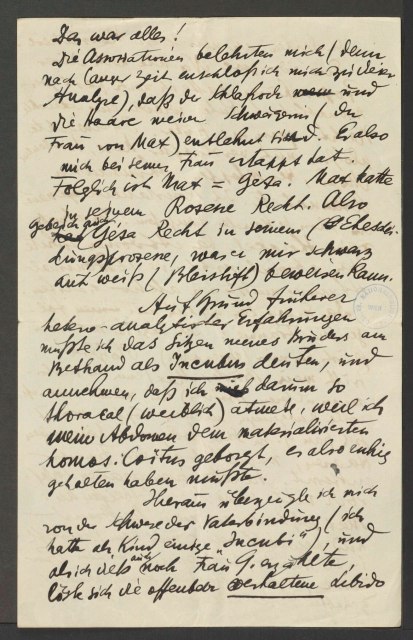 Das war alles!
Die Assoziationen belehrten mich (denn
nach langer Zeit entschloß ich mich zu dieser
Analyse), daß der Schlafrock und
die Haare meiner Schwägerin (der
Frau von Max) entlehnt sind. Er also
mich bei seiner Frau ertappt hat.
Folglich ist Max = Géza. Max hatte
in seinem Prozesse Recht. Also
gebe ich auch
Géza Recht in seinem (Ehesschei-
dungs)prozesse, was er mir schwarz
auf weiß (Bleistift) beweisen kann.
Auf Grund früherer
hetero-analytischer Erfahrungen
mußte ich das Sitzen meines Bruders am
Bettrand als Incubus deuten, und
annehmen, daß ich darum so
thorakal (weiblich) atmete, weil ich
mein Abdomen dem materialisierten
homos. Coitus geborgt, es also ruhig
gehalten haben mußte.
Hieraus überzeugte ich mich
von der Schwere der Vaterbindung (ich
hatte als Kind einige "Incubi"), und
als ich dies auch noch Frau G. erzählte,
löste sich die offenbar verhaltene Libido